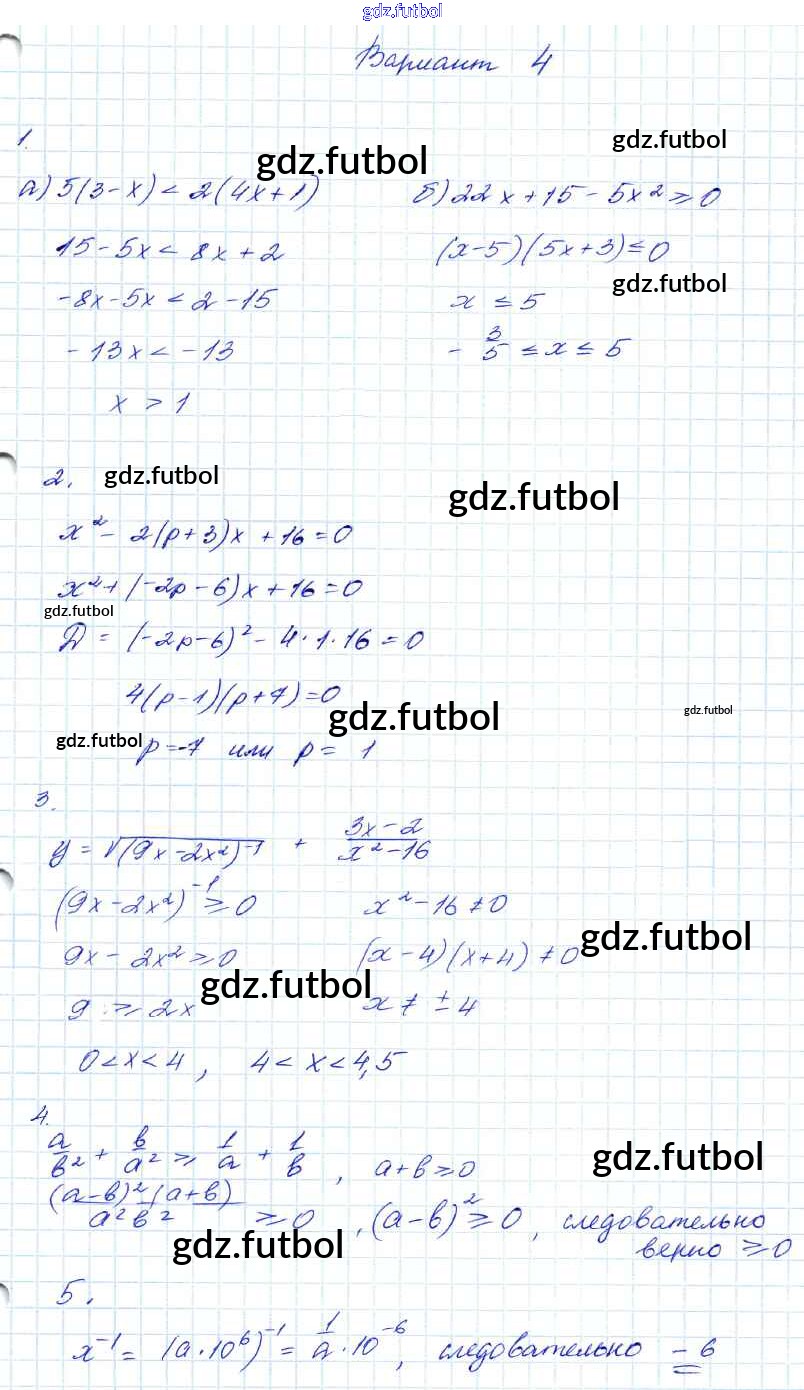 gdz.futbol
Вариант 4
1.
gdz.futbol
gdz.futbol
а) 5(3-x) < 2(4x+1)
б) 22x+15-5x² ≥ 0
15-5x < 8x+2
(x-5)(5x+3) ≤ 0
gdz.futbol
-8x-5x < 2-15
x ≤ 5
-13x < -13
-3/5 ≤ x ≤ 5
x > 1
2. gdz.futbol
gdz.futbol
x² - 2(p+3)x + 16 = 0
x² + (-2p-6)x + 16 = 0
gdz.futbol
D = (-2p-6)² - 4·1·16 = 0
4(p-1)(p+7) = 0
gdz.futbol
gdz.futbol
gdz.futbol
p = -7 или p = 1
3.
y = √(9x-2x²)⁻¹ + (3x-2)/(x²-16)
(9x-2x²)⁻¹ ≥ 0
x²-16 ≠ 0
gdz.futbol
9x - 2x² ≥ 0
(x-4)(x+4) ≠ 0
gdz.futbol
9 ≥ 2x
x ≠ ±4
0 < x < 4, 4 < x < 4,5
4.
a/b² + b/a² ≥ 1/a + 1/b, a+b ≥ 0
gdz.futbol
(a-b)²(a+b)/a²b² ≥ 0, (a-b)² ≥ 0, следовательно
верно ≥ 0
gdz.futbol
5.
x⁻¹ = (a·10⁶)⁻¹ = 1/a · 10⁻⁶, следовательно -6